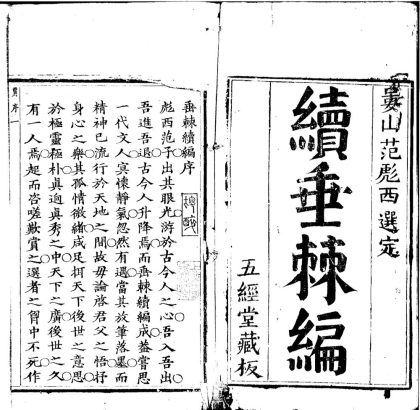 婁山范彪西選定
續垂棘編
五經堂藏板
垂棘續編序
彪西范子出其眼光游於古今人之心吾入吾出
吾進吾退古今人升降焉而垂棘續編成益嘗思
一代文人冥懷靜氣忽然有遇當其放筆落墨而
精神已流行於天地之間故毋論啓君父之悟抒
身心之樂其孤情微緒咸足抇天下後世之意思
於極靈極朴真逈真秀之中天下之廣後世之久
有一人焉起而咨嗟歎賞之選者之胷中不死作